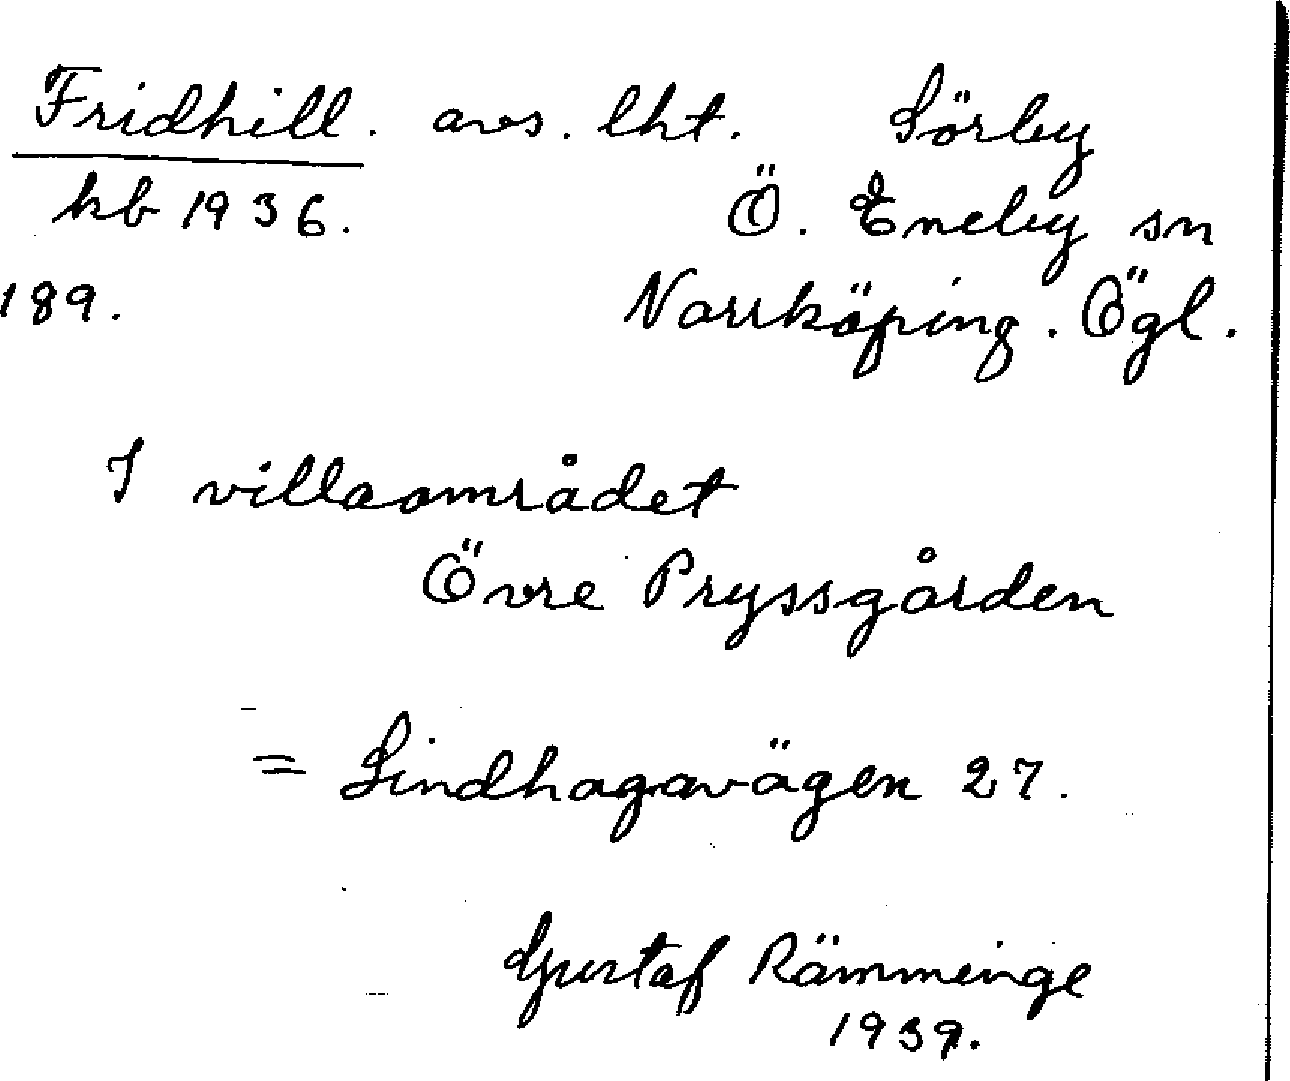 Fridhill. avs. lht. Sörby
kb 1936. Ö. Eneby sn
189. Norrköping. Ögl.
I villaområdet
Övre Pryssgården
= Lindhagavägen 27.
Gustaf Rämminge
1939.